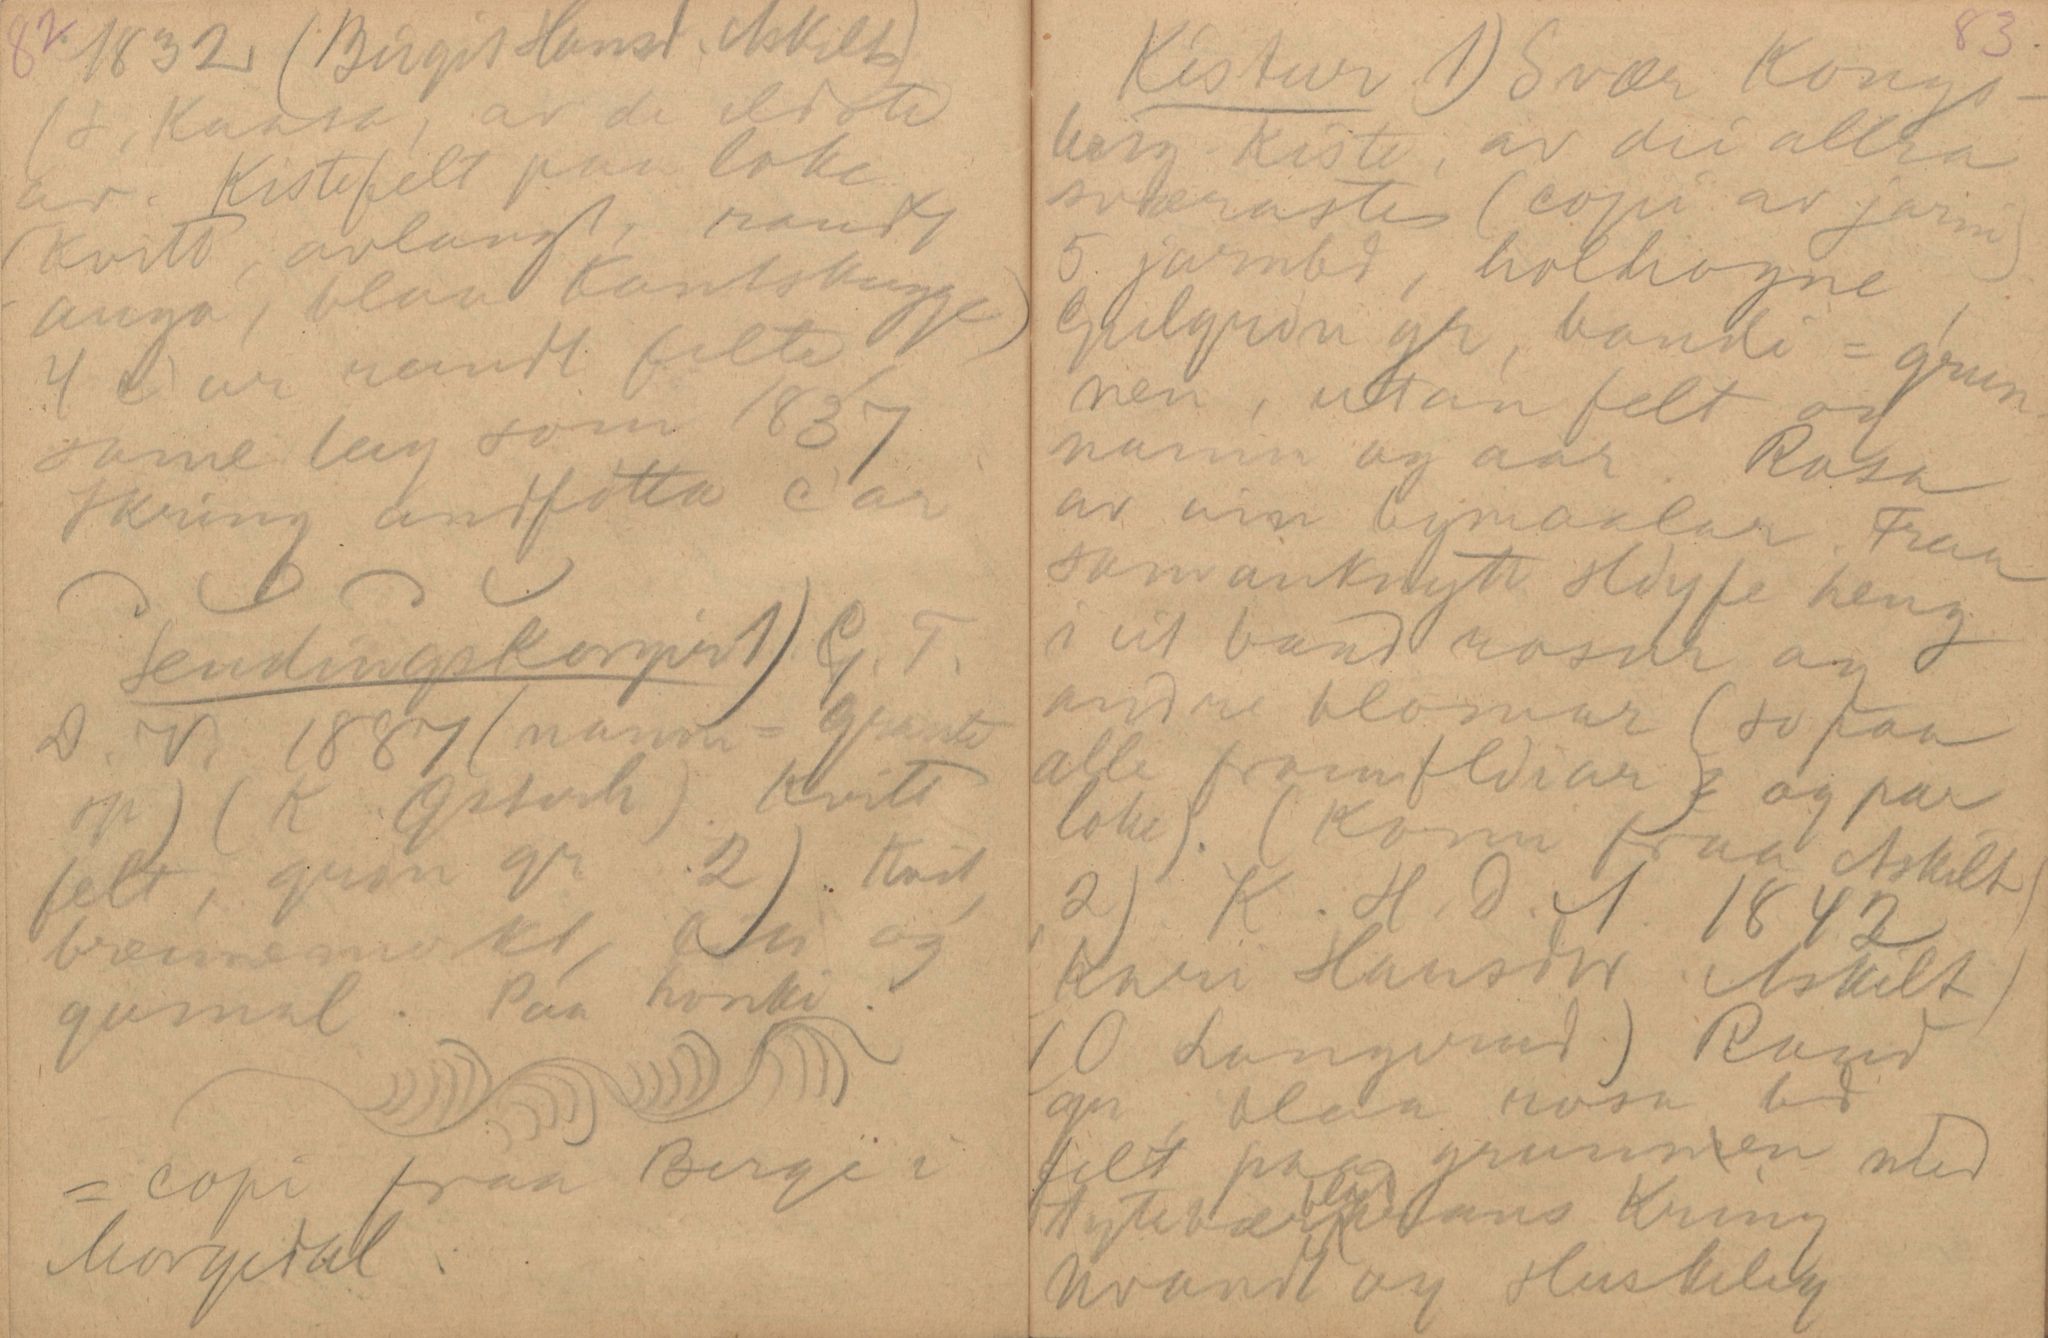 82.
1832 (Birgit Hansd. Askilt)
(T. Kaasa, av de eldste
ar. Kistefelt paa loke
(kvitt, avlangt, raudt
auga, blaa kantskugge)
4 C ar raudt felte,
same leg som 1837
kring andføtta C ar
Sendingskorgir 1) G. T.
D. V. 1887 (namn = Grante
op) (K. Gstoch). Kvitt
felt, grøn gr 2). Kvit,
brennemerkt, og
gamal. Paa honki.
= copi fraa Berge i
Morgedal.
83.
Kistur 1) Svær Kongs-
berg kiste, av dei allra
sværaste (copi av jarni)
5 jarnbd, holhogne,
Gulgrøn gr, bandi = grun-
nen, utan felt og
namn og aar. Rosa
av ein bymaalar. Fraa
samanknytt sløyfe heng
i eit band rosur og
andre blomar (so paa
alle framfløiar = og paa
loke). (Komi fraa Askilt)
2) K. H. D. A. 1842
Kari Hansdtr Askilt)
(O Langerud) Raud
gr, blaa rosa bd
felt paa grunnen med
Tytebær blad krans kring
Nvandt og Huskeleg